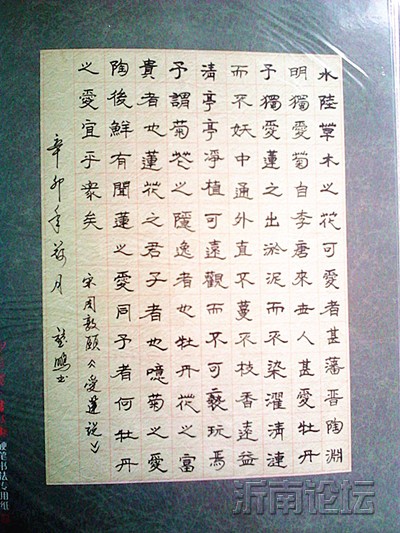 水陸草木之花可愛者甚藩晋陶淵
明獨愛菊自李唐來世人甚愛牡丹
予獨愛蓮之出淤泥而不染濯清漣
而不妖中通外直不蔓不枝香遠益
清亭亭淨植可遠觀而不可褻玩焉
予謂菊花之隱逸者也牡丹花之富
貴者也蓮花之君子者也噫菊之愛
陶後鮮有聞蓮之愛同予者何牡丹
之愛宜乎衆矣
宋周敦頤《愛蓮説》
辛卯年荷月
鵬书
硬笔书法专用纸
沂南论坛